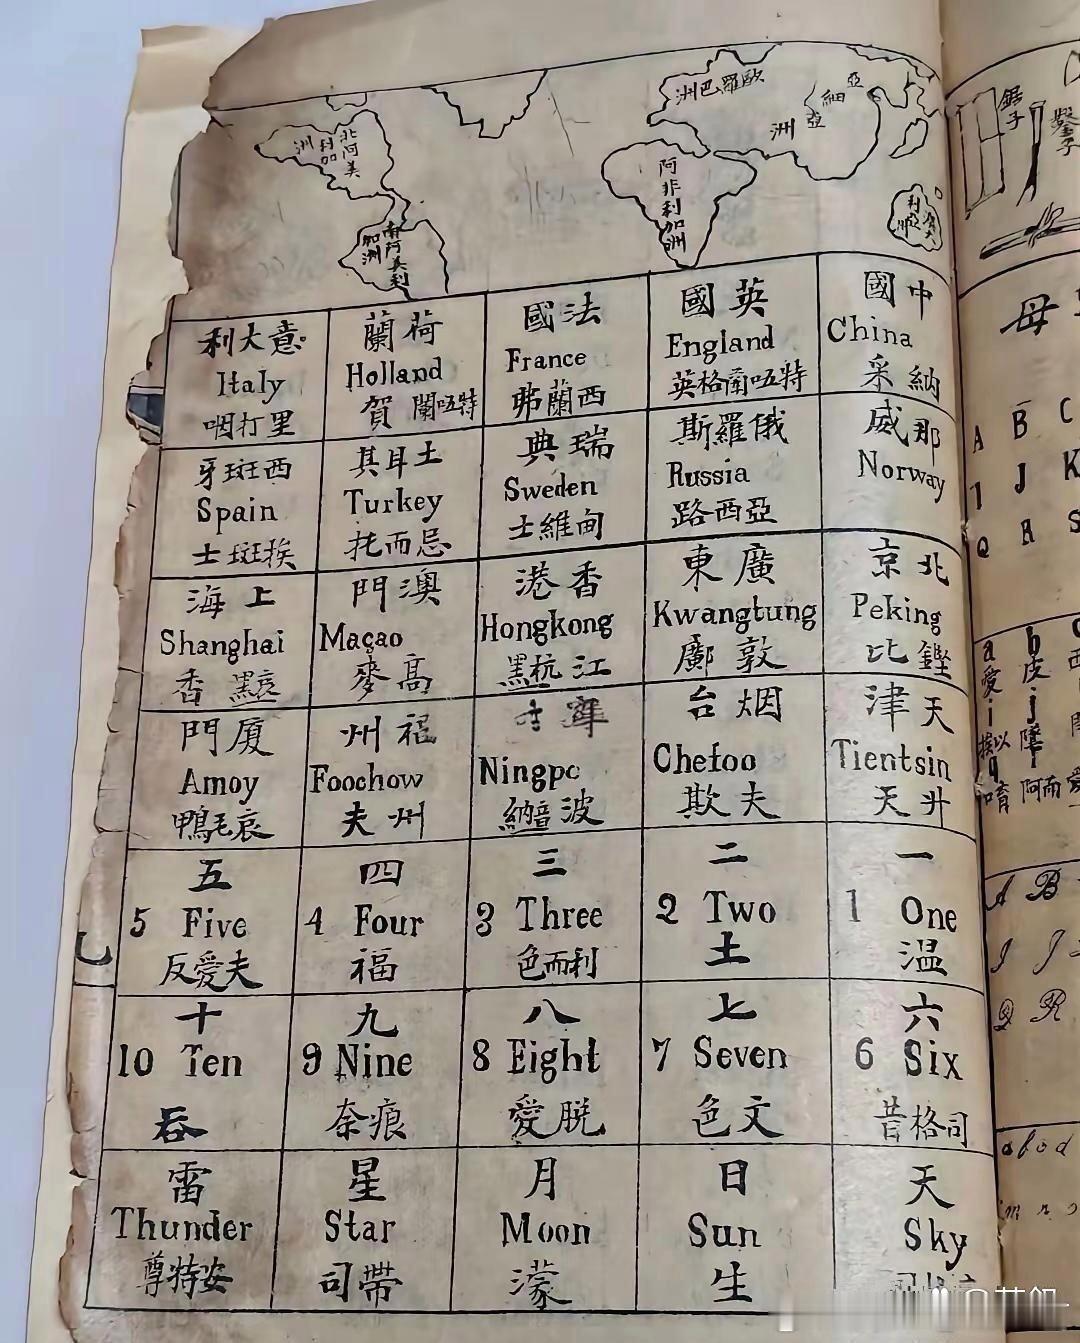 北阿美利加洲
南阿美利加洲
歐羅巴洲
亞細亞洲
阿非利加洲
利亞洲
中國
China
采納
英國
England
英格蘭唔特
法國
France
弗蘭西
荷蘭
Holland
賀蘭唔特
意大利
Italy
咽打里
那威
Norway
俄羅斯
Russia
路西亞
瑞典
Sweden
士維甸
土耳其
Turkey
托而忌
西班牙
Spain
士斑挨
北京
Peking
比鏗
廣東
Kwangtung
鄺敦
香港
Hongkong
黑杭江
澳門
Maçao
麥高
上海
Shanghai
香黑哀
天津
Tientsin
天升
烟台
Chefoo
欺夫
寧
Ningpo
納音波
福州
Foochow
夫州
廈門
Amoy
鴨毛哀
一
1 One
温
二
2 Two
土
三
3 Three
色而利
四
4 Four
福
五
5 Five
反愛夫
六
6 Six
昔格司
七
7 Seven
色文
八
8 Eight
愛脱
九
9 Nine
奈痕
十
10 Ten
吞
天
Sky
日
Sun
生
月
Moon
濛
星
Star
司帶
雷
Thunder
尊特安
鋸子
鑿子
母
A B C
J K
Q R S
a b
愛 皮
i j
挨以
q r
A B
I J
Q R